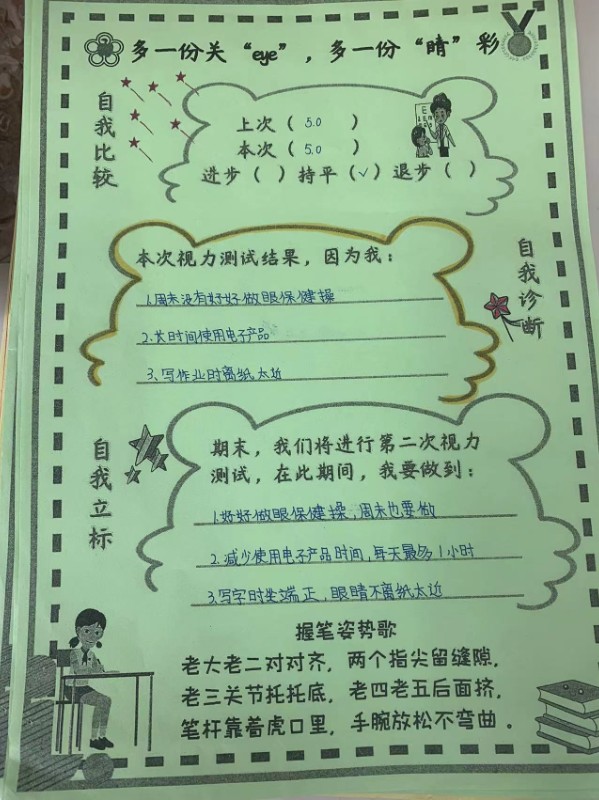 多一份关“eye”，多一份“睛”彩
自我比较
上次（ 5.0 ）
本次（ 5.0 ）
进步（ ）持平（✓）退步（ ）
自我诊断
本次视力测试结果，因为我：
1.周末没有好好做眼保健操
2.长时间使用电子产品
3、写作业时离纸太近
自我立标
期末，我们将进行第二次视力
测试，在此期间，我要做到：
1.好好做眼保健操，周末也要做
2.减少使用电子产品时间，每天最多1小时
3.写字时坐端正，眼睛不离纸太近
握笔姿势歌
老大老二对对齐，两个指尖留缝隙，
老三关节托托底，老四老五后面挤，
笔杆靠着虎口里，手腕放松不弯曲。